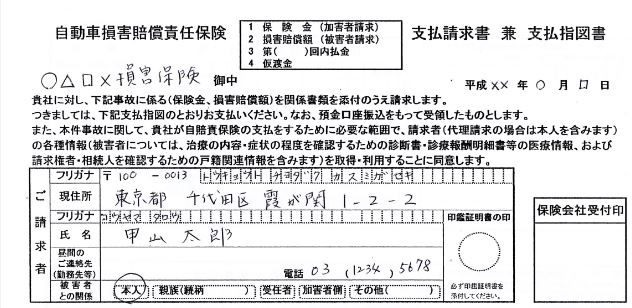 自動車損害賠償責任保険
1 保険金(加害者請求)
2 損害賠償額(被害者請求)
3 第( )回内払金
4 仮渡金
支払請求書 兼 支払指図書
○△□×損害保険 御中
平成 ×× 年 ○ 月 □ 日
貴社に対し、下記事故に係る(保険金、損害賠償額)を関係書類を添付のうえ請求します。
つきましては、下記支払指図のとおりお支払いください。なお、預金口座振込をもって受領したものとします。
また、本件事故に関して、貴社が自賠責保険の支払をするために必要な範囲で、請求者(代理請求の場合は本人を含みます)
の各種情報(被害者については、治療の内容・症状の程度を確認するための診断書・診療報酬明細書等の医療情報、および
請求権者・相続人を確認するための戸籍関連情報を含みます)を取得・利用することに同意します。
ご請求者
フリガナ 〒100-0013 トウキョウト チヨダク カスミガセキ
現住所 東京都 千代田区 霞が関 1-2-2
フリガナ コウヤマ タロウ
氏名 甲山 太郎
印鑑証明書の印
昼間の
ご連絡先
(勤務先等)
電話 03 (1234) 5678
必ず印鑑証明書を
添付してください。
被害者
との関係
本人 親族(続柄 ) 受任者 加害者側 その他( )
保険会社受付印